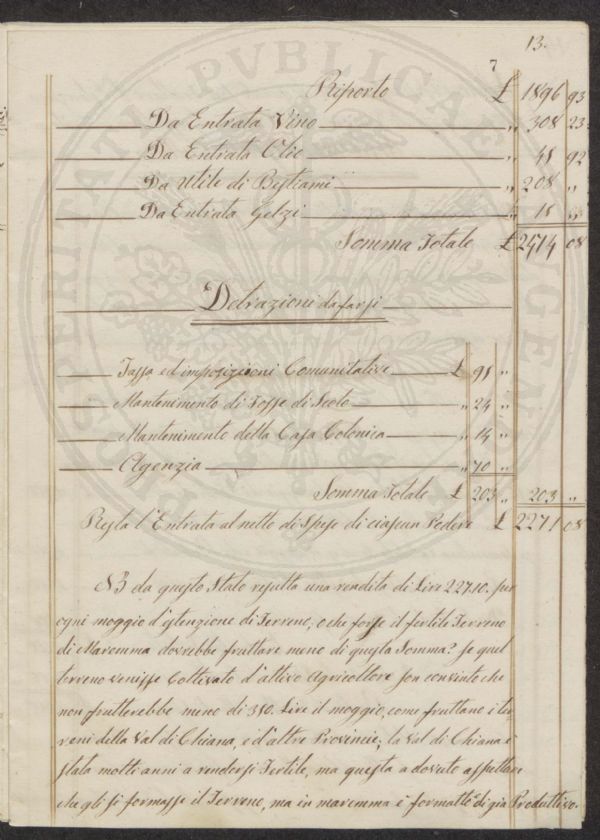 13.
7
Riporto £ 1896 93
Da Entrata Vino „ 308 23
Da Entrata Olio „ 48 92
Da Utile di Bestiami „ 208 „
Da Entrata Gelzi „ 18 „
Somma Totale £ 2474 08
Detrazioni da farsi
Tassa ed imposizioni Comunitative £ 95 „
Mantenimento di Fosse di Scolo „ 24 „
Mantenimento della Casa Colonica „ 14 „
Agenzia „ 70 „
Somma Totale £ 203 „ 203 „
Resta l'Entrata al netto di Spese di ciascun Podere £ 2271 08
NB da questo Stato resulta una rendita di Lire 227.10. per
ogni moggio d'estenzione di Terreno; o che forse il fertile Terreno
di Maremma dovrebbe fruttare meno di questa Somma? Se quel
terreno venisse Coltivato d'attivo Agricoltore son convinto che
non frutterebbe meno di 350. Lire il moggio, come fruttano i ter
reni della Val di Chiana, e d'altre Provincie; la Val di Chiana è
stata molti anni a rendersi Fertile, ma questa a dovuto aspettare
che gli si formasse il Terreno, ma in maremma è formatto di già Produttivo.
PUBLICAE